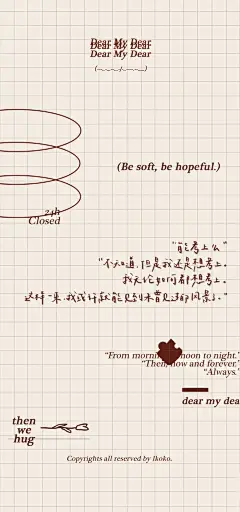 Dear My Dear
Dear My Dear
Dear My Dear
(Be soft, be hopeful.)
24h
Closed
"能考上么"
"不知道,但是我还是想考上。
我无论如何都想考上。
这样一来,我或许就能见到未曾见过的风景了。"
"From morning noon to night."
"Then, now and forever."
"Always."
dear my dea
then
we
hug
Copyrights all reserved by Ikoko.